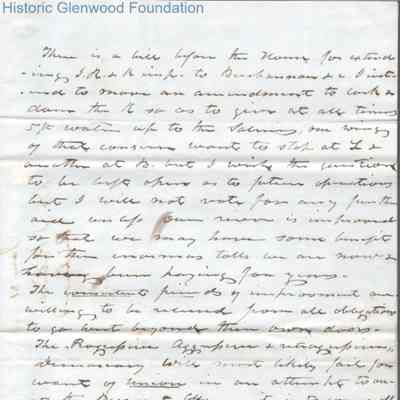 Historic Glenwood Foundation
There is a bill before the House for extend
-ing J. R. & K imp. to Buchannan & I int
-end to move an amendment to lock &
dam the R so as to give at all times
5 ft water up to the Salines, one wing
of that concern want to stop at L &
another at B. but I wish the question
to be left open as to future operations
but I will not vote for any further
aid unless our river is improved
so that we may have some benefit
for the enormous tolls we are now &
having been paying for years.
The consistent friends of improvement are
willing to be released from all obligation
to go beyond their own doors.
The Progressive Aggressive & retrogressive
democracy will most likely fail for
want of union in an attempt to